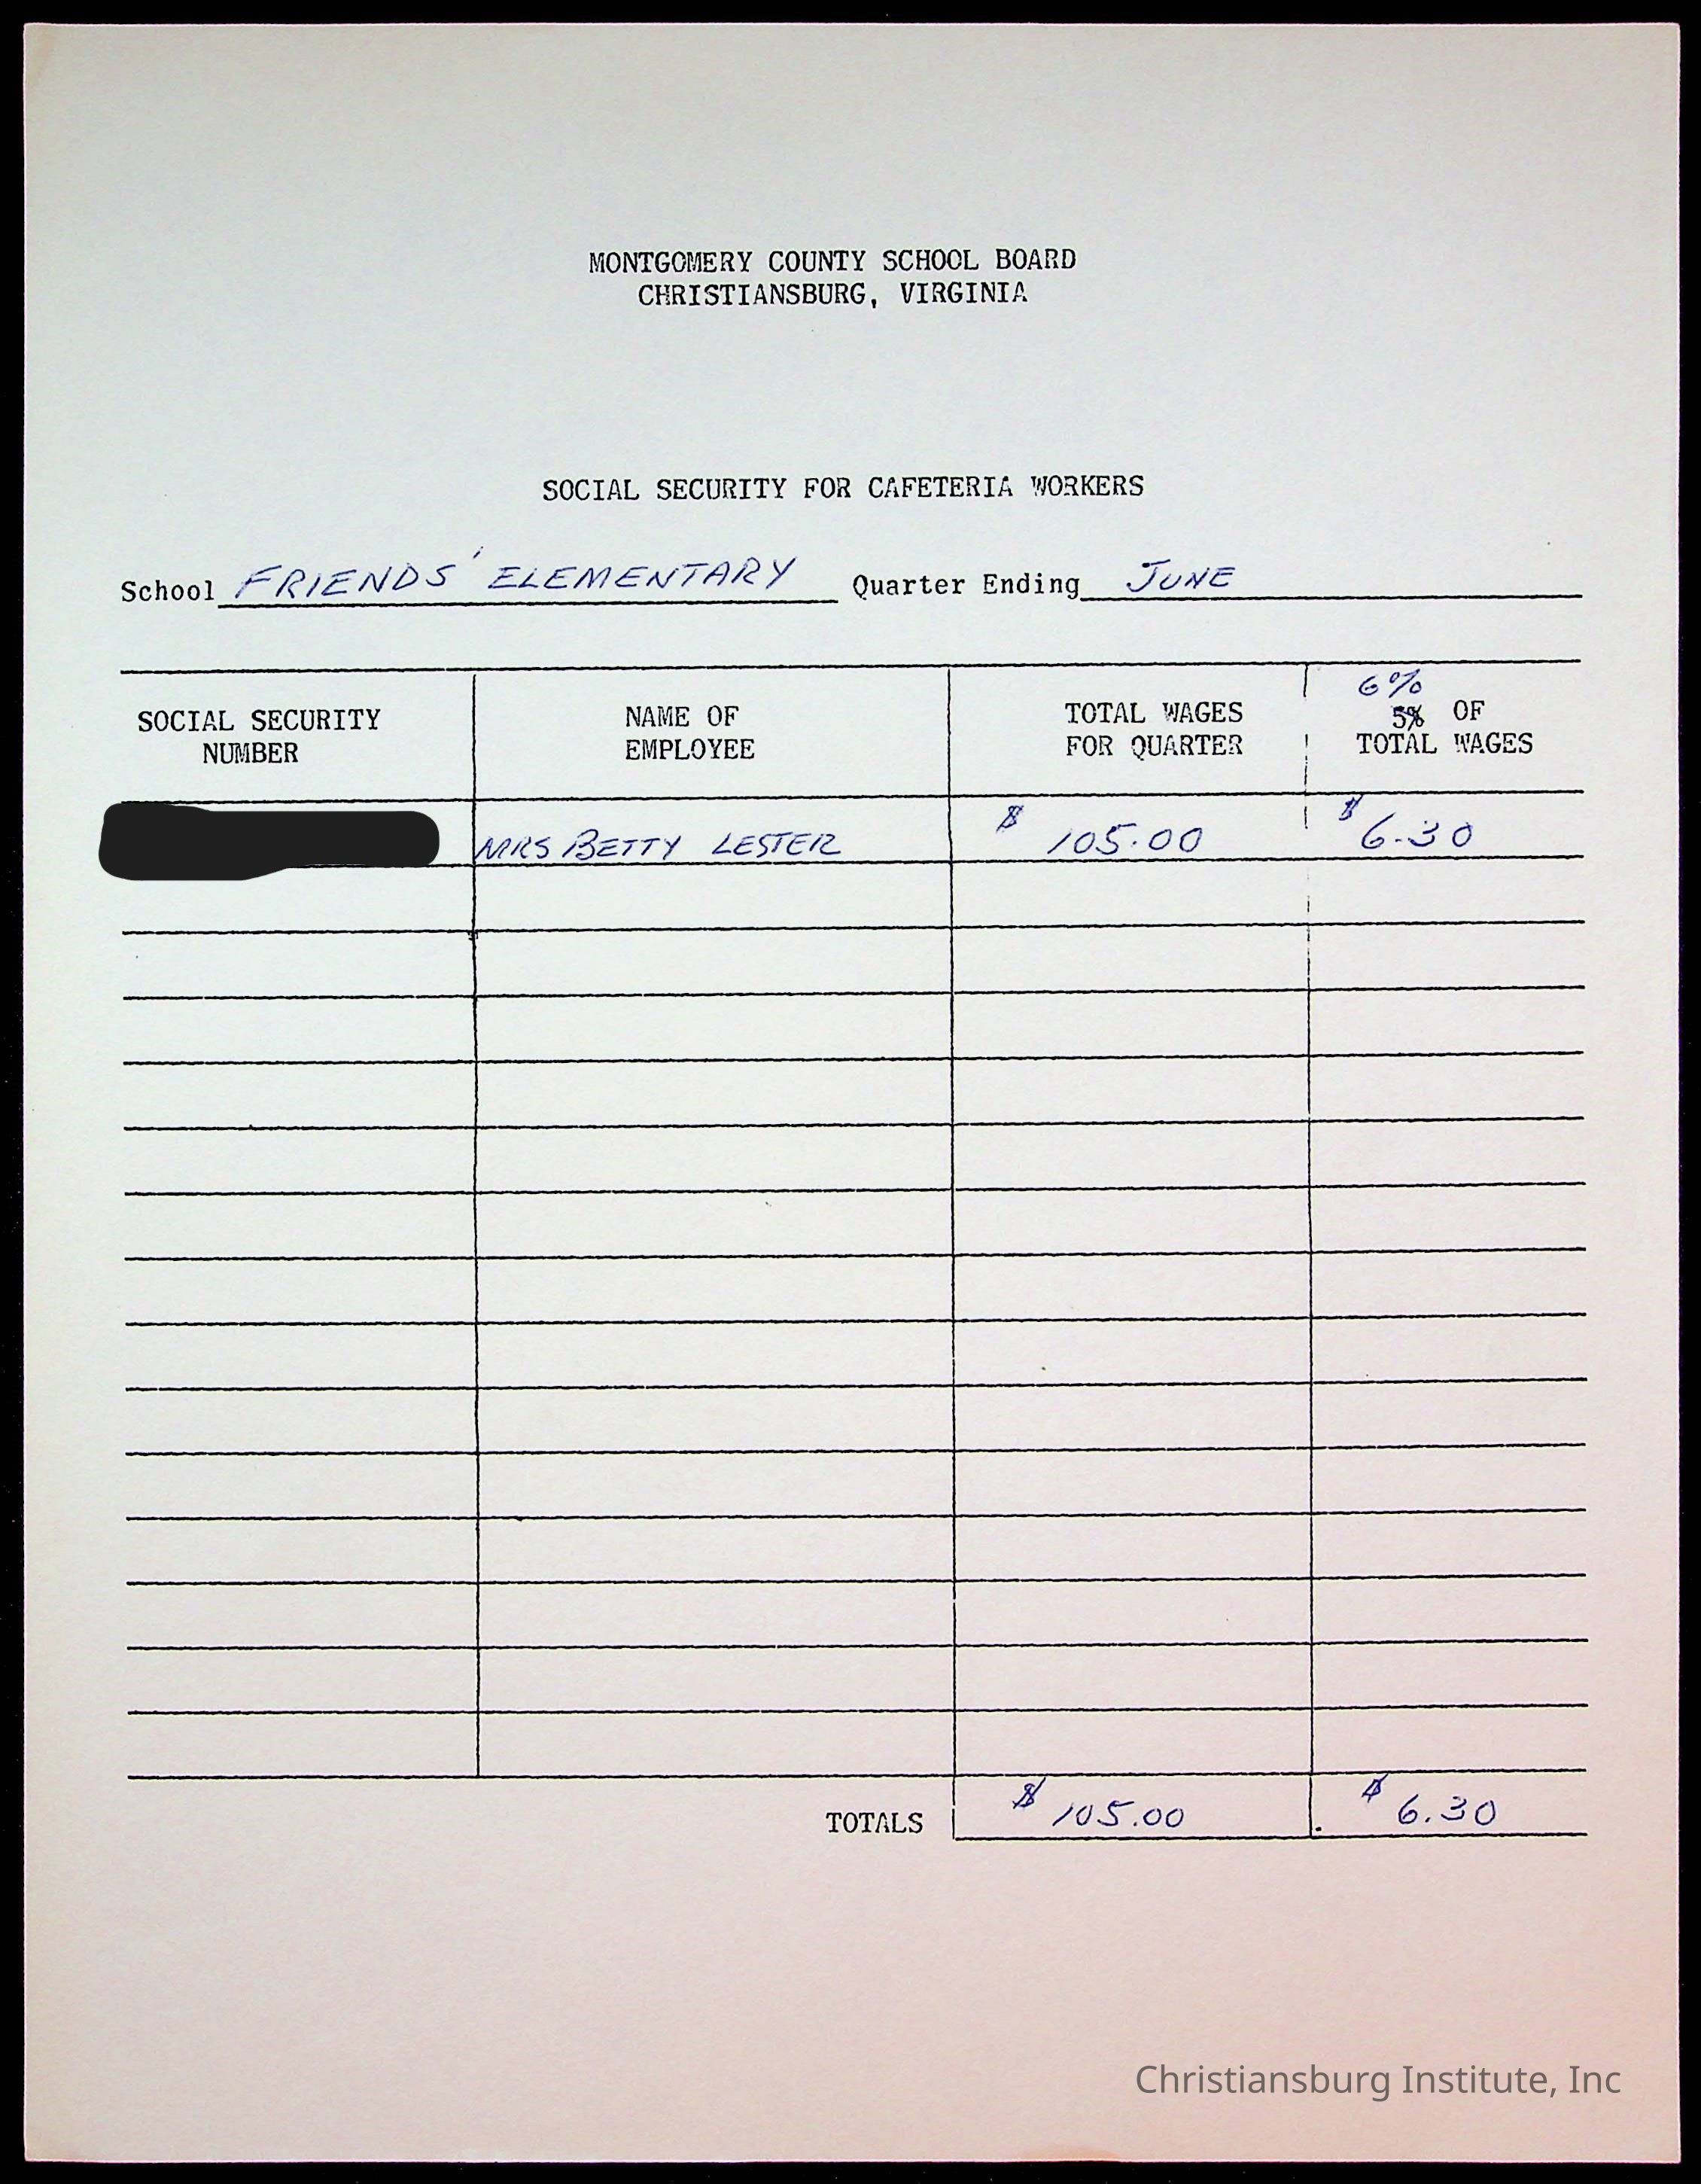 MONTGOMERY COUNTY SCHOOL BOARD
CHRISTIANSBURG, VIRGINIA
SOCIAL SECURITY FOR CAFETERIA WORKERS
School FRIENDS' ELEMENTARY Quarter Ending JUNE
6%
SOCIAL SECURITY NAME OF TOTAL WAGES 5% OF
NUMBER EMPLOYEE FOR QUARTER TOTAL WAGES
MRS BETTY LESTER $ 105.00 $ 6.30
TOTALS $ 105.00 $ 6.30
Christiansburg Institute, Inc